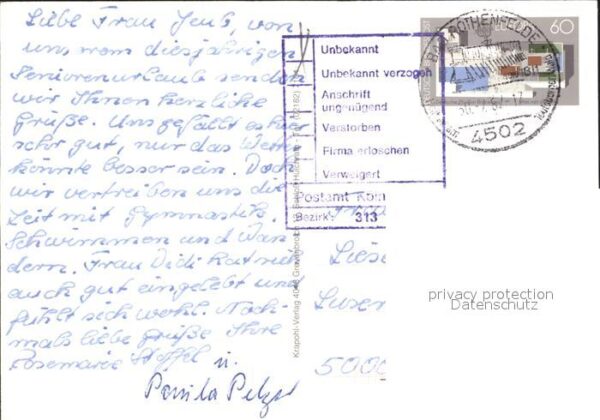 Liebe Frau Jeub, von
uns vom diesjährigen
Seniorenurlaub senden
wir Ihnen herzliche
Grüße. Uns gefällt es hier
sehr gut, nur das Wetter
könnte besser sein. Doch
wir vertreiben uns die
Zeit mit Gymnastik,
Schwimmen und Wan
dern. Frau Didi hat sich
auch gut eingelebt und
fühlt sich wohl. Noch-
mals liebe Grüße Ihre
Rosemarie
u.
Pamila
Unbekannt
Unbekannt verzogen
Anschrift
ungenügend
Verstorben
Firma erloschen
Verweigert
Postamt
Bezirk: 313
Krapohl-Verlag 4048 Grevenbroich
60
ROTHENFELDE
4502
5000
privacy protection
Datenschutz